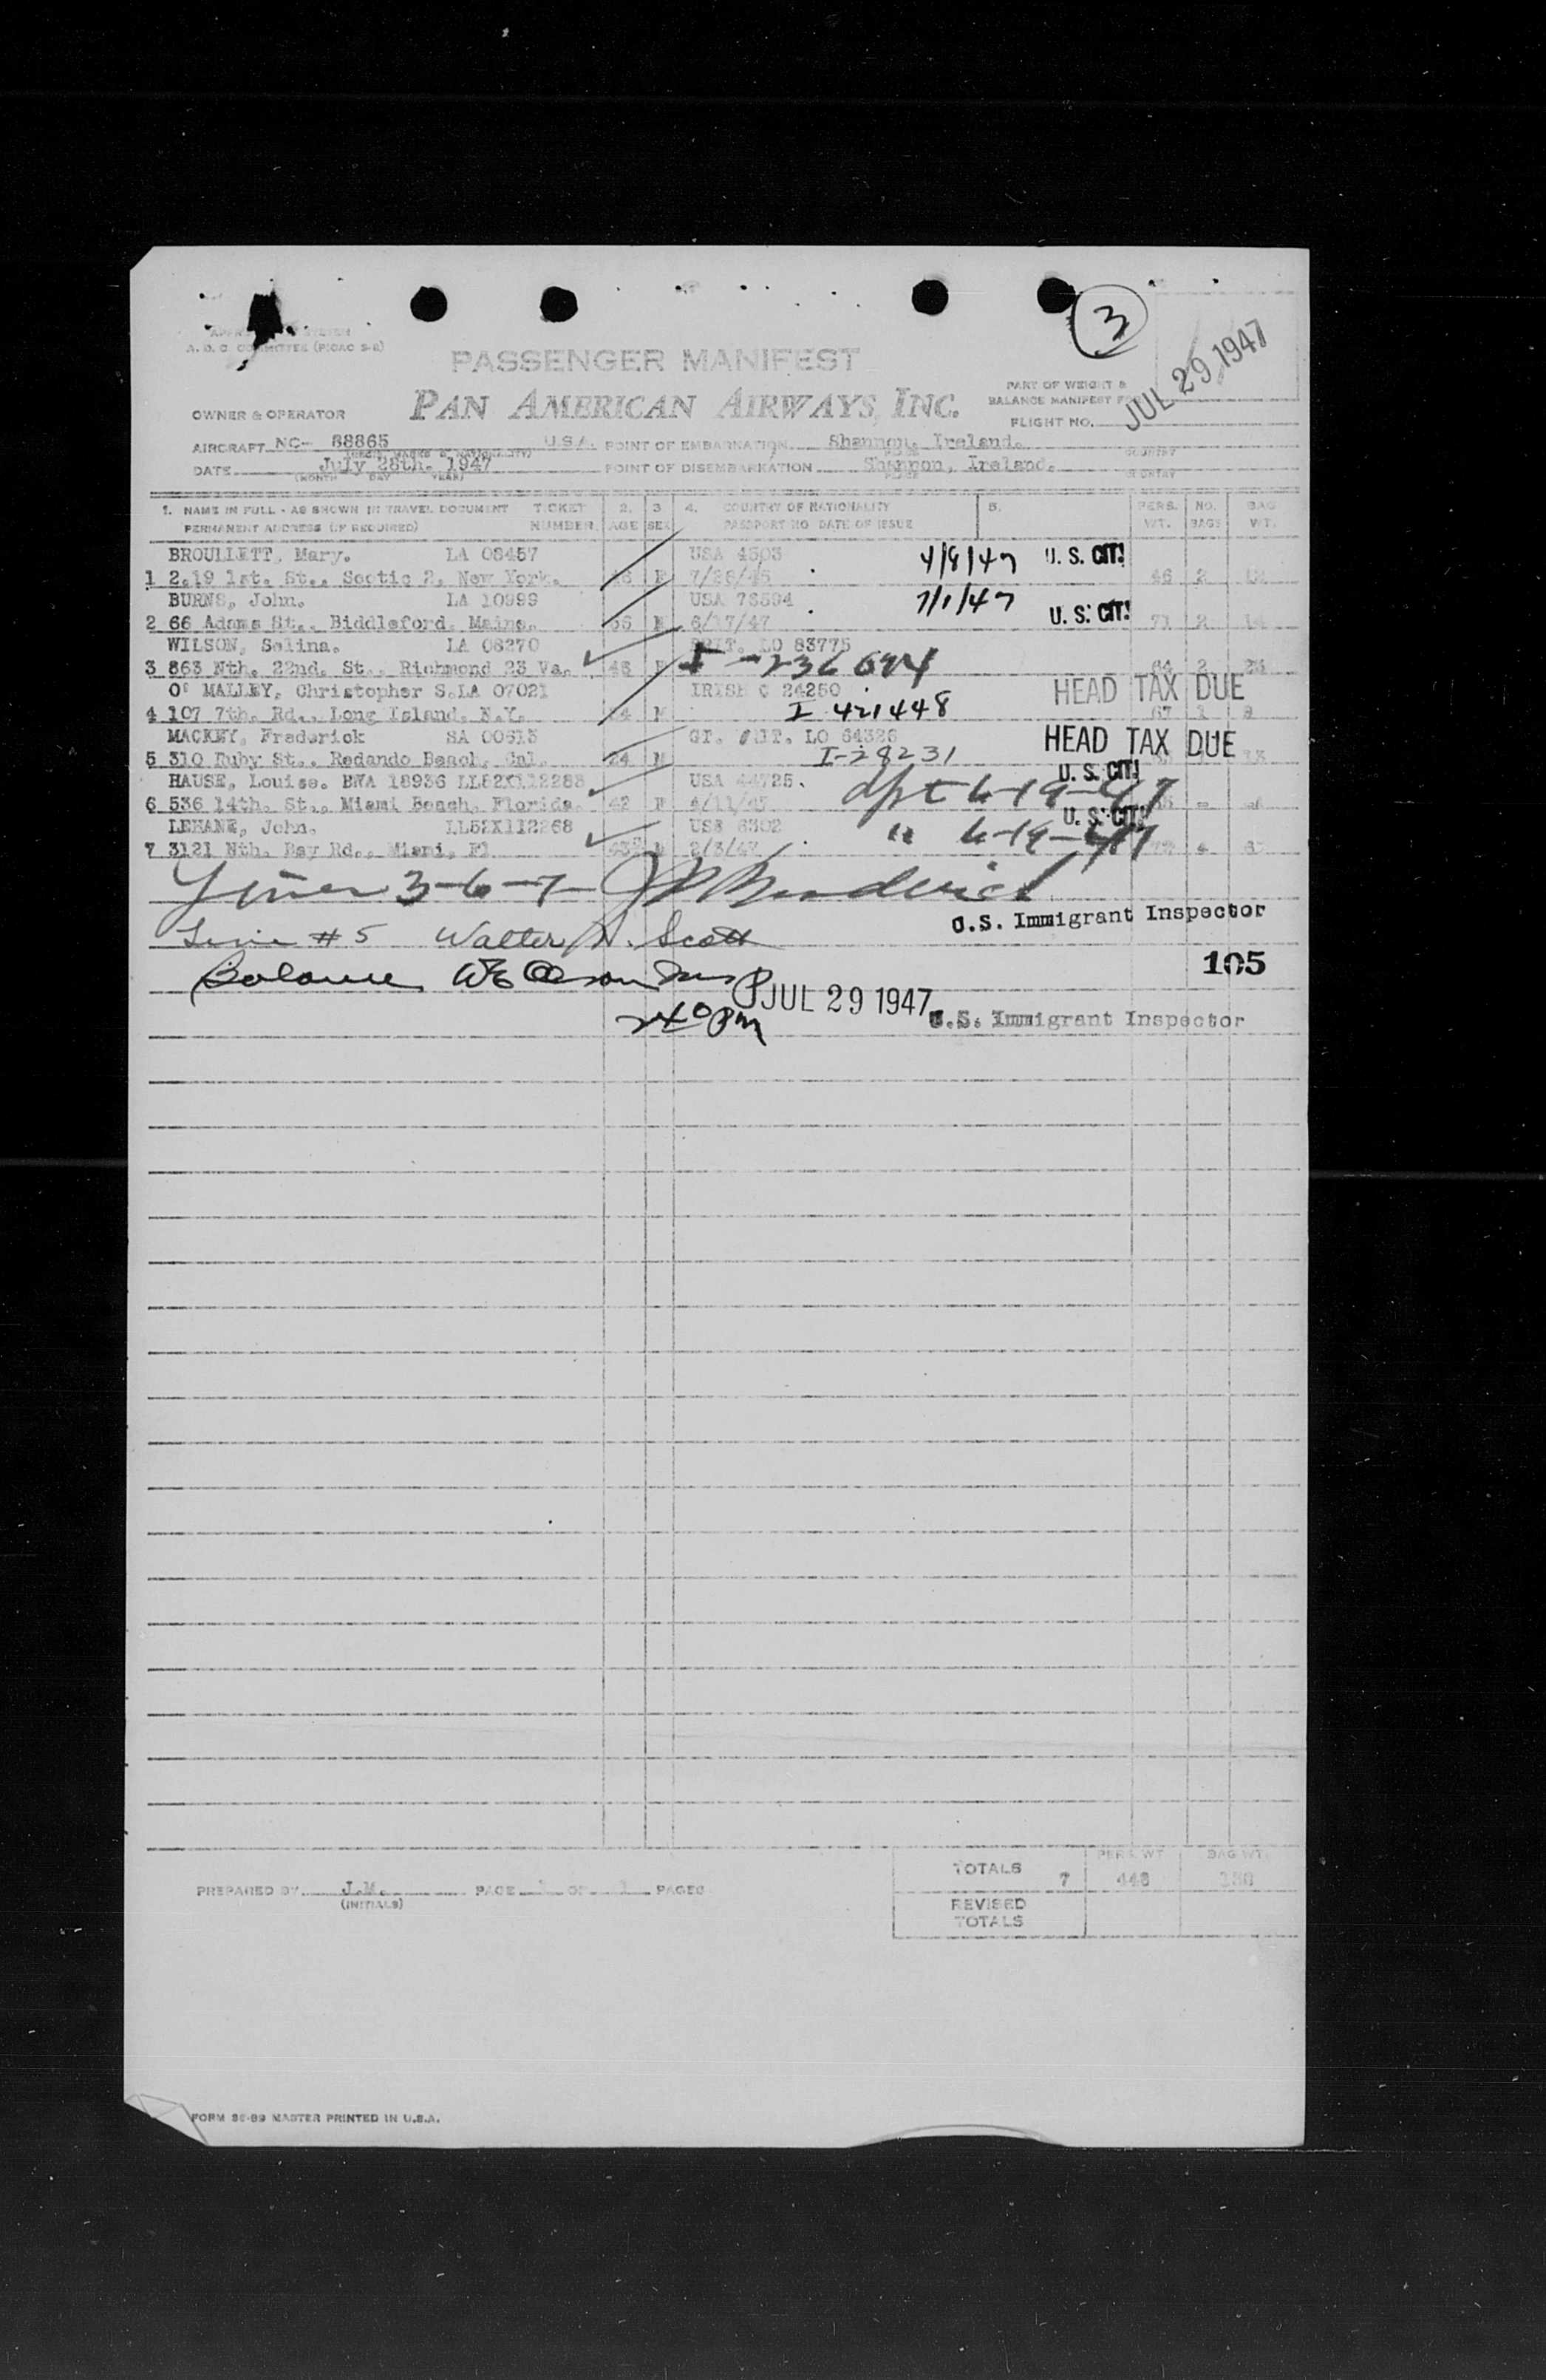 3
JUL 29 1947
A. O. C. COMMITTEE (PICAO S-2)
PASSENGER MANIFEST
PAN AMERICAN AIRWAYS, INC.
PART OF WEIGHT &
BALANCE MANIFEST FOR
OWNER & OPERATOR
FLIGHT NO.
AIRCRAFT NC- 88865 U.S.A. POINT OF EMBARKATION Shannon, Ireland. COUNTRY
DATE July 28th. 1947 POINT OF DISEMBARKATION Shannon, Ireland. COUNTRY
(MONTH DAY YEAR)
1. NAME IN FULL - AS SHOWN IN TRAVEL DOCUMENT TICKET 2. 3 4. COUNTRY OF NATIONALITY 5. PERS. NO. BAG
PERMANENT ADDRESS (IF REQUIRED) NUMBER. AGE SEX PASSPORT NO DATE OF ISSUE WT. BAGS WT.
BROULLETT, Mary. LA 08457 USA 4503 4/8/47 U. S. CIT!
1 2.19 1st. St., Scotic 2, New York. F 7/26/46 46 2
BURNS, John. LA 10999 USA 76594 7/1/47
2 66 Adams St., Biddleford, Maine. M 6/17/47 U. S. CIT! 71 2 14
WILSON, Selina. LA 08270 BRIT. LO 83775
3 863 Nth. 22nd. St., Richmond 23 Va. F 64 2
O' MALLEY, Christopher S. LA 07021 IRISH C 24250 HEAD TAX DUE
4 107 7th. Rd., Long Island, N.Y. M I 421448 67 1
MACKEY, Frederick SA 00615 GT. BRIT. LO 64326 HEAD TAX DUE
5 310 Ruby St., Redando Beach, Cal. 24 M I-28231 13
HAUSE, Louise. BWA 18936 LL52X112283 USA 44725. U. S. CIT!
6 536 14th. St., Miami Beach, Florida. 42 F 6-19-47
LEHANE, John. LL52X112268 USS 6302 U. S. CIT!
7 3121 Nth. Bay Rd., Miami, Fl M 2/3/47 " 6-19-47
3-6-7
U.S. Immigrant Inspector
Line #5 Walter A. Scott
105
Balance
JUL 29 1947
U.S. Immigrant Inspector
2 40 pm
PERS. WT BAG WT.
TOTALS 7 448
PREPARED BY J.M. PAGE OF 1 PAGES
(INITIALS)
REVISED
TOTALS
FORM 86-89 MASTER PRINTED IN U.S.A.